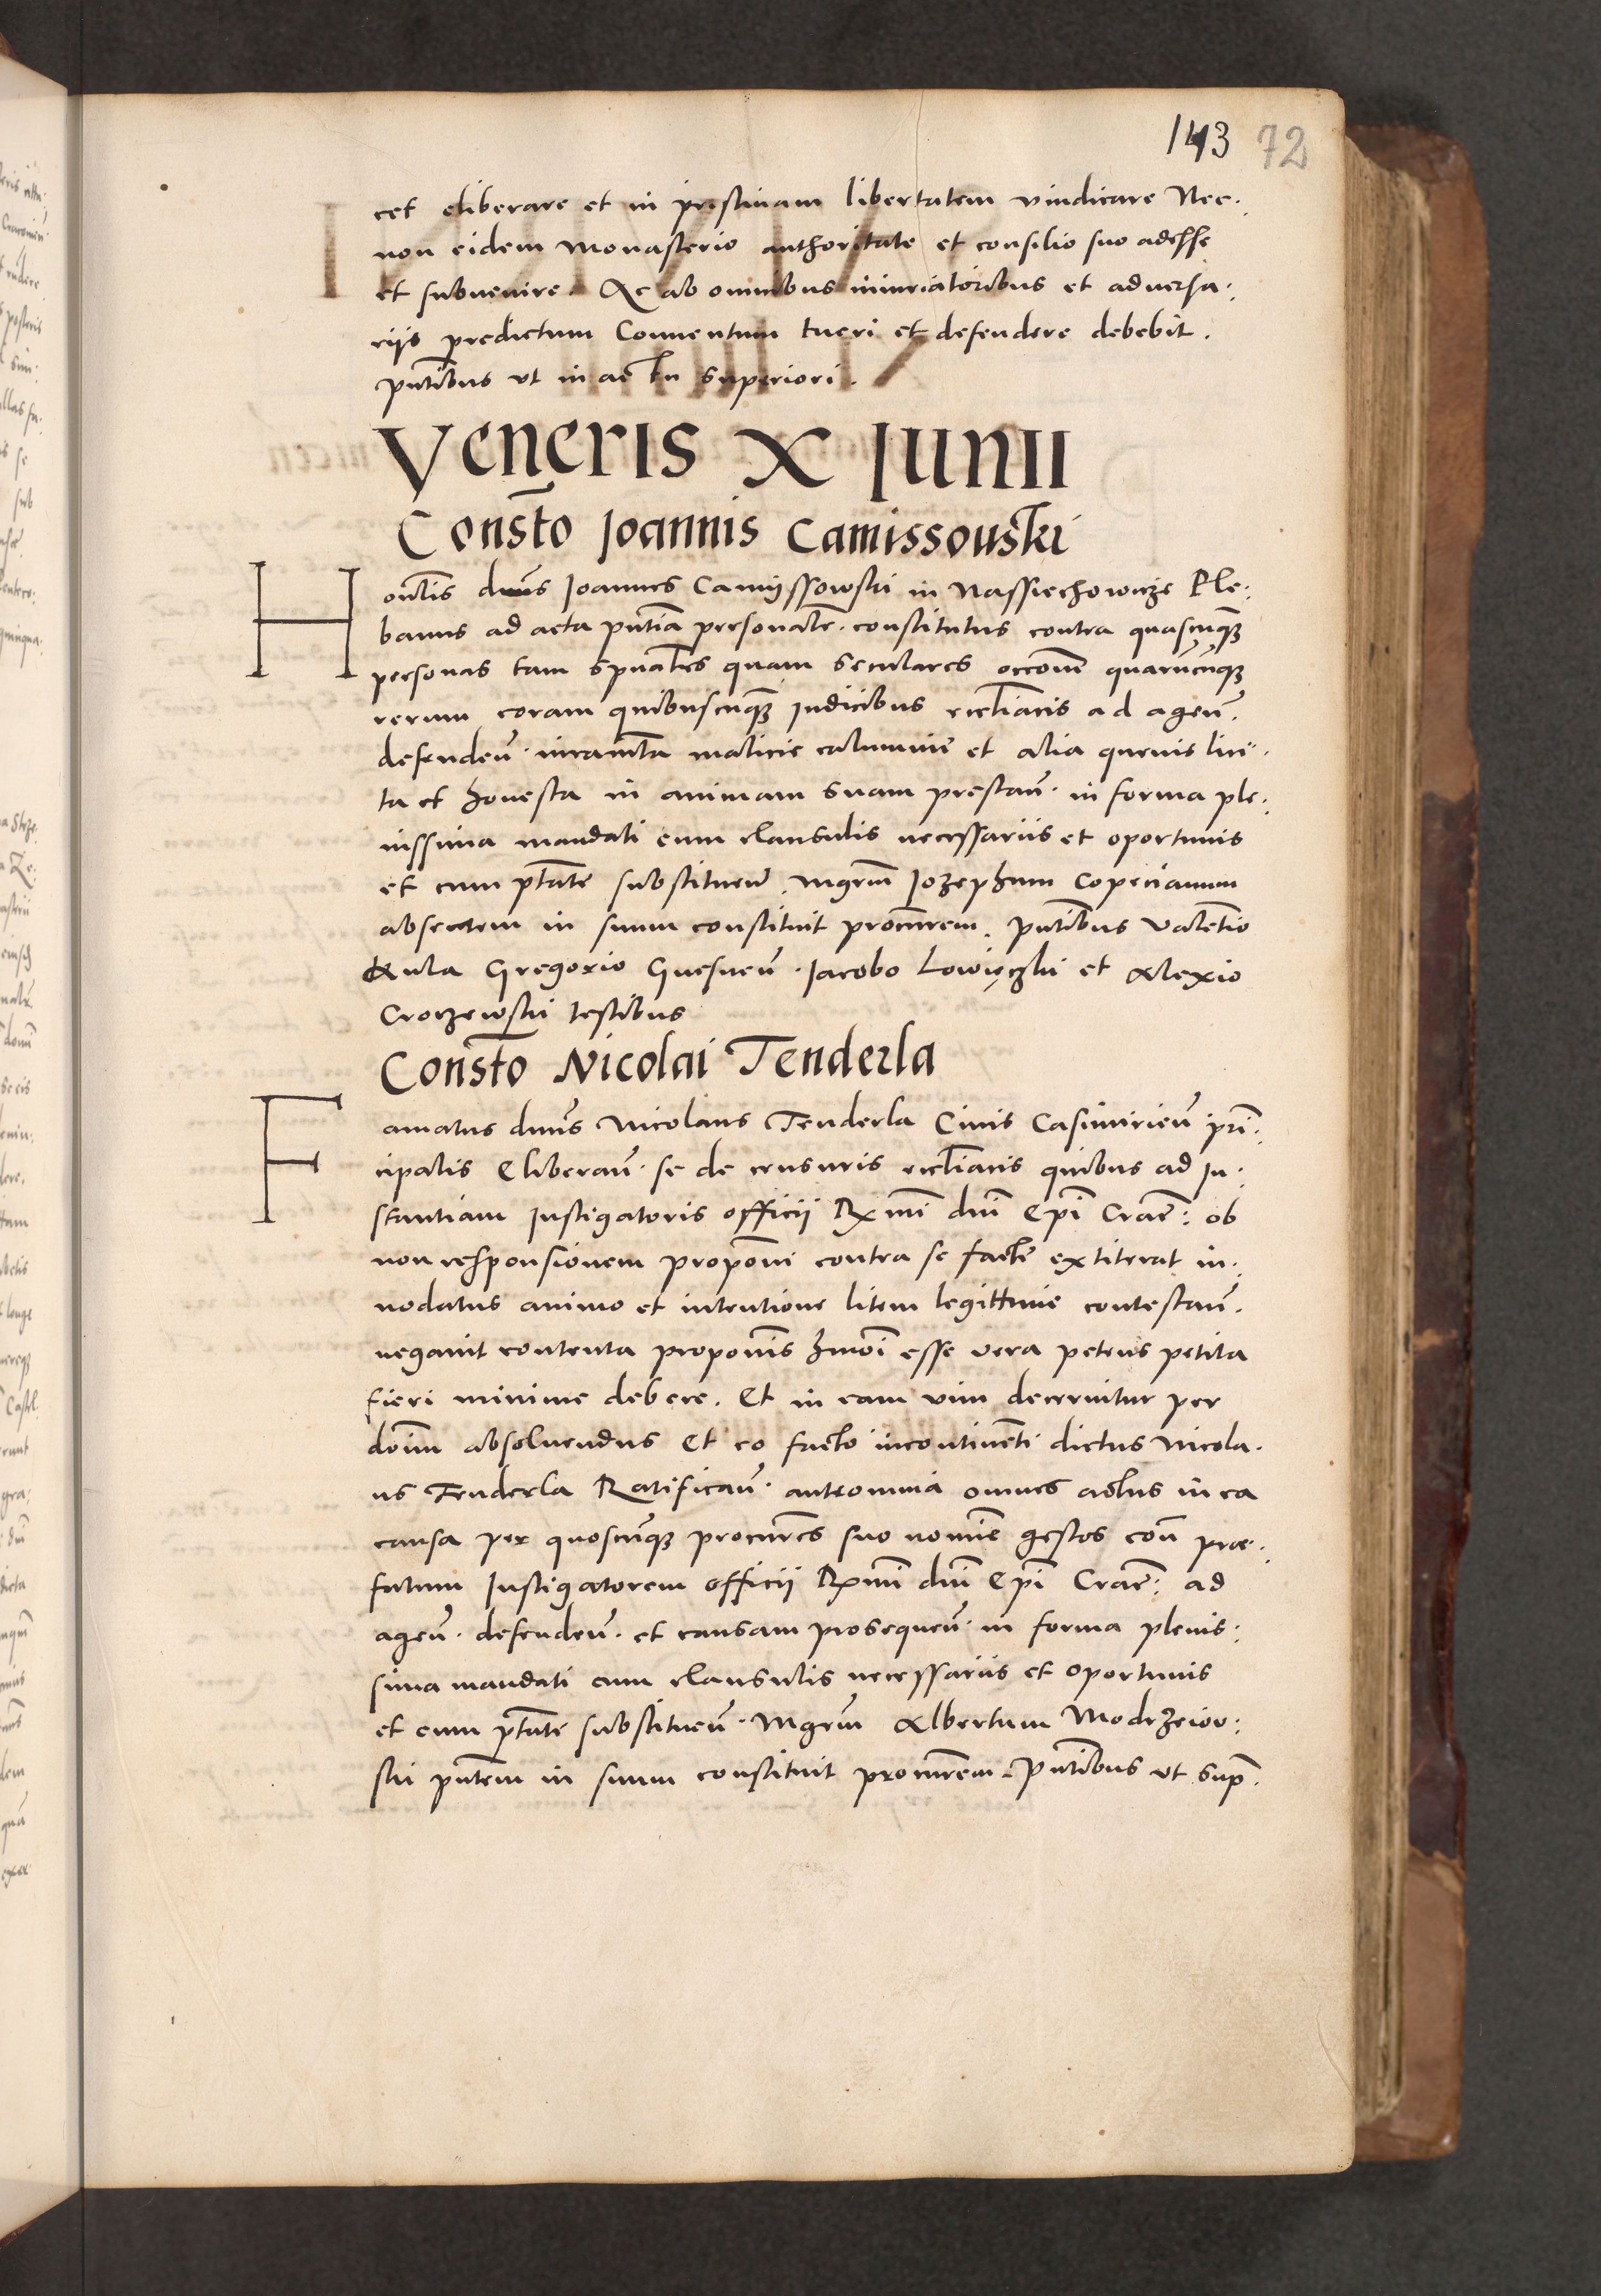 143 72
cet eliberare et in pristinam libertatem vindicare Nec:
non eidem Monasterio authoritate et consilio suo adesse
et subvenire. Ac ab omnibus iniuriatoribus et adversa:
rijs predictum Conventum tueri et defendere debebit.
pūtibus vt in actu superiori.
Veneris X Iunii
Constō Joannis Camissouski
Honlis dnūs Joannes Camijssowski in Nassiechowicze Ple:
banus ad acta pūtia personalr constitutus contra quascūq
personas tam spūales quam seculares occōne quarūcūq
rerum coram quibuscūq Judicibus eccliacis ad agen̄.
defenden̄. iuramta malicie calumnie et alia quevis lici:
ta et honesta in animam suam prestan̄. in forma ple:
nissima mandati cum clausulis necessariis et oportunis
et cum ptāte substituen̄. mgrm Jozephum Copecianum
absentem in suum constituit procurrem. pūtibus Valentio
Kula Gregorio Gnesnen̄. Jacobo Lowięczki et Alexio
Croczewski testibus
Constō Nicolai Tenderla
Famatus dnūs Nicolaus Tenderla Civis Casimirien̄ prī:
cipalis Eliberan̄. se de censuris eccliacis quibus ad In:
stantiam Instigatoris officii Rx mi dni Epi Crac̄: ob
non responsionem propōni contra se facte extiterat in:
nodatus animo et intentione litem legittime contestan̄.
negavit contenta propōnis hmōi esse vera petens petita
fieri minime debere. Et in eam vim decernitur per
doīm absolvendus Et eo facto incontinenti dictus Nicola:
us Tenderla Ratifican̄. anteomnia omnes actus in ea
causa per quoscūq procurres suo nomine gestos con̄ prae:
fatum Instigatorem officii Rxmi dni Epi Crac̄: ad
agen̄. defenden̄. et causam prosequen̄. in forma plenis:
sima mandati cum clausulis necessariis et oportunis
et cum ptāte substituen̄. Mgrm Albertum Modrzeiow:
ski pūtem in suum constituit procurrem. pūtibus vt sup̄.